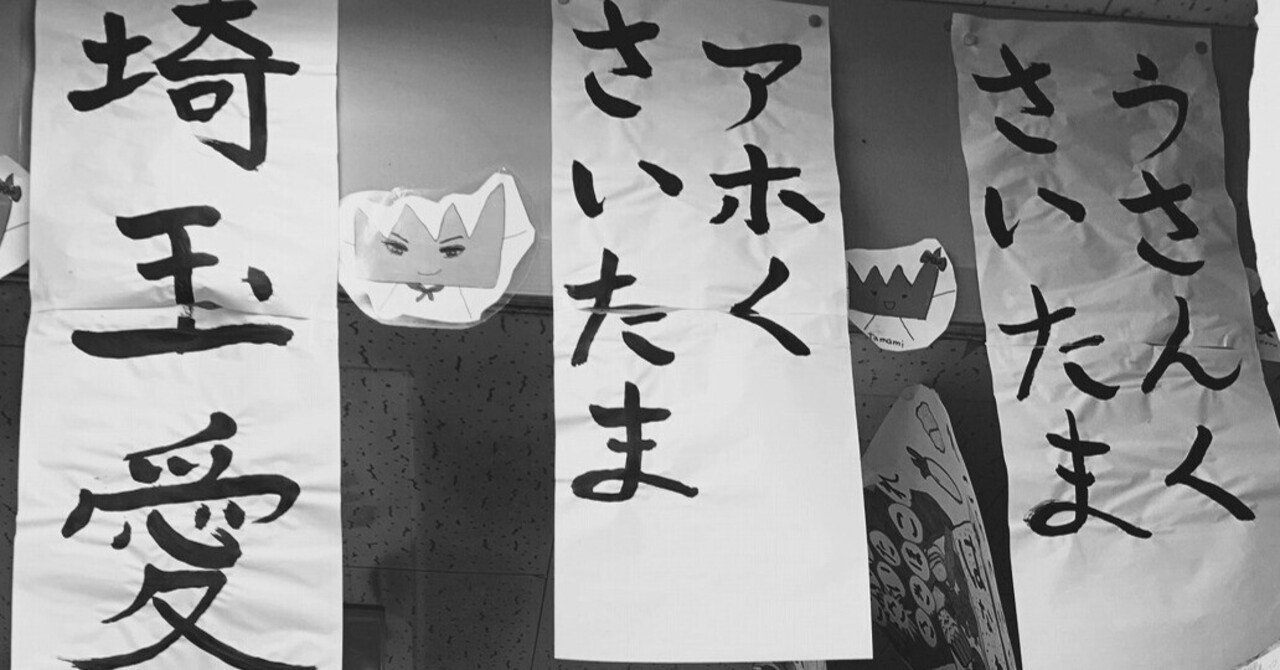 うさんく
さいたま
アホく
さいたま
埼玉愛
Tamami